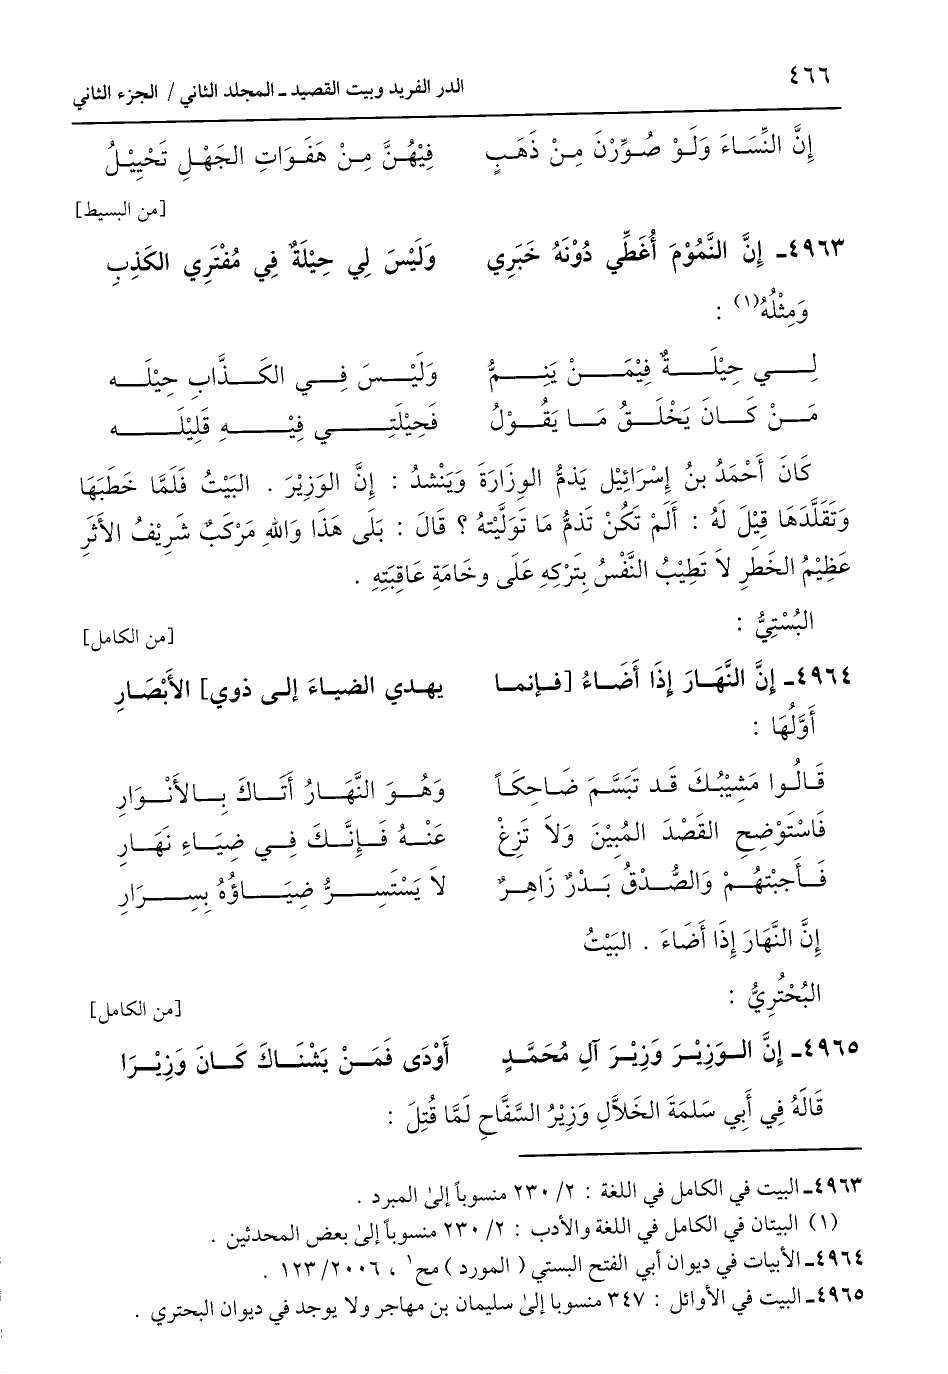 ٤٦٦
الدر الفريد وبيت القصيد ـ المجلد الثاني / الجزء الثاني
إِنَّ النِّسَاءَ وَلَوْ صُوِّرْنَ مِنْ ذَهَبٍ فِيْهُنَّ مِنْ هَفَوَاتِ الجَهْلِ تَخْيِيْلُ
[من البسيط]
٤٩٦٣ـ إِنَّ النَّمُوْمَ أُغَطِّي دُوْنَهُ خَبَرِي وَلَيْسَ لِي حِيْلَةٌ فِي مُفْتَرِي الكَذِبِ
وَمِثْلُهُ(١) :
لِـي حِيْلَـةٌ فِيْمَـنْ يَنِـمُّ وَلَيْـسَ فِـي الكَـذَّابِ حِيْلَـه
مَـنْ كَـانَ يَخْلَـقُ مَـا يَقُـوْلُ فَحِيْلَتِـي فِيْـهِ قَلِيْلَـه
كَانَ أَحْمَدُ بنُ إِسْرَائِيْل يَذمُّ الوِزَارَةَ وَيَنْشدُ : إِنَّ الوَزِيْرَ . البَيْتُ فَلَمَّا خَطَبَهَا
وَتَقَلَّدَهَا قِيْلَ لَهُ : أَلَمْ تَكُنْ تَذمُّ مَا تَوَلَّيْتَهُ ؟ قَالَ : بَلَى هَذَا وَاللهِ مَرْكَبٌ شَرِيْفُ الأَثَرِ
عَظِيْمُ الخَطَرِ لاَ تَطِيْبُ النَّفْسُ بِتَرْكِهِ عَلَى وخَامَةِ عَاقِبَتِهِ .
البُسْتِيُّ :
[من الكامل]
٤٩٦٤ـ إِنَّ النَّهَـارَ إِذَا أَضَـاءُ [فـإنمـا يهـدي الضيـاءَ إلـى ذوي] الأَبْصَـارِ
أَوَّلُهَا :
قَـالُـوا مَشِيْبُـكَ قَـد تَبَسَّـمَ ضَـاحِكـاً وَهُـوَ النَّهَـارُ أَتَـاكَ بِـالأَنْـوَارِ
فَاسْتَوْضِحِ القَصْدَ المُبِيْنَ وَلاَ تَزِغْ عَنْـهُ فَـإِنَّـكَ فِـي ضِيَـاءِ نَهَـارِ
فَـأَجبْتهُـمْ وَالصُّـدْقُ بَـدْرٌ زَاهِـرٌ لاَ يَسْتَسِـرُّ ضِيَـاؤُهُ بِسِـرَارِ
إِنَّ النَّهَارَ إِذَا أَضَاءَ . البَيْتُ
البُحْتُرِيُّ :
[من الكامل]
٤٩٦٥ـ إِنَّ الـوَزِيْـرَ وَزِيْـرَ آلِ مُحَمَّـدٍ أَوْدَى فَمَـنْ يَشْنَـاكَ كَـانَ وَزِيْـرَا
قَالَهُ فِي أَبِي سَلمَةَ الخَلاَّلِ وَزِيْرُ السَّفَّاحِ لَمَّا قُتِلَ :
٤٩٦٣ـ البيت في الكامل في اللغة : ٢/ ٢٣٠ منسوباً إلىٰ المبرد .
(١) البيتان في الكامل في اللغة والأدب : ٢/ ٢٣٠ منسوباً إلىٰ بعض المحدثين .
٤٩٦٤ـ الأبيات في ديوان أبي الفتح البستي ( المورد ) مج١ ، ٢٠٠٦/ ١٢٣ .
٤٩٦٥ـ البيت في الأوائل : ٣٤٧ منسوبا إلىٰ سليمان بن مهاجر ولا يوجد في ديوان البحتري .